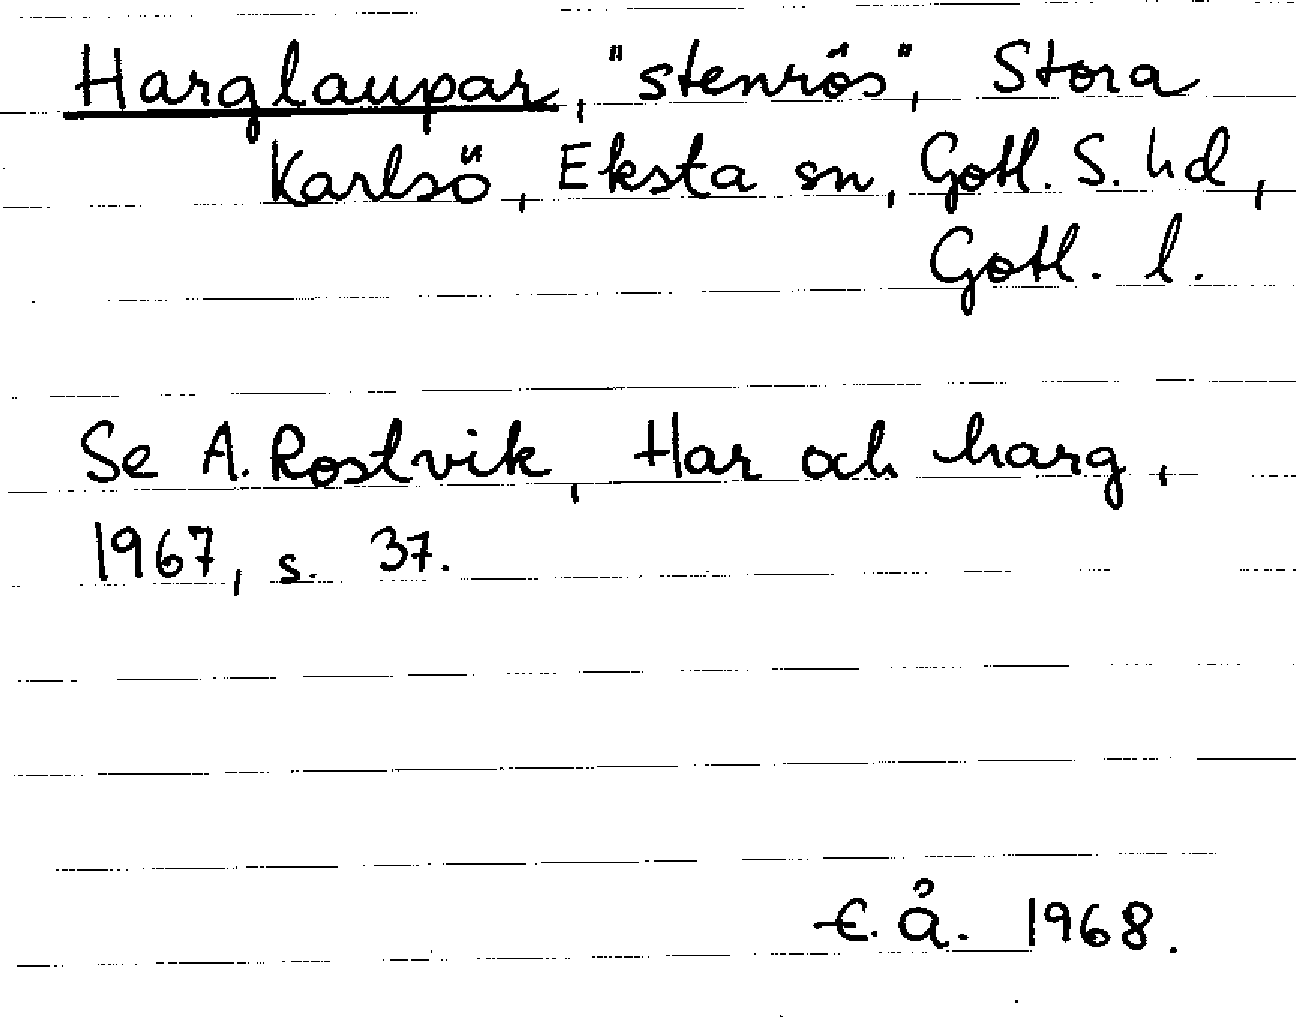 Harglaupar, "stenrös", Stora
Karlsö, Eksta sn, Gotl. S. hd,
Gotl. l.
Se A. Rostvik, Har och harg,
1967, s. 37.
E. å. 1968.